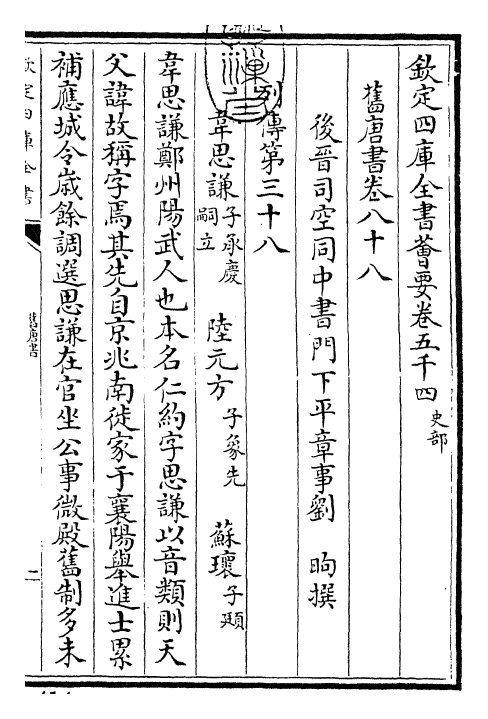 欽定四庫全書薈要卷五千四 史部
舊唐書卷八十八
後晉司空同中書門下平章事劉 昫撰
列傳第三十八
韋思謙 子承慶 嗣立 陸元方 子象先 蘇瓌 子頲
韋思謙鄭州陽武人也本名仁約字思謙以音類則天
父諱故稱字焉其先自京兆南徙家于襄陽舉進士累
補應城令歳餘調選思謙在官坐公事微殿舊制多未
欽定四庫全書
舊唐書